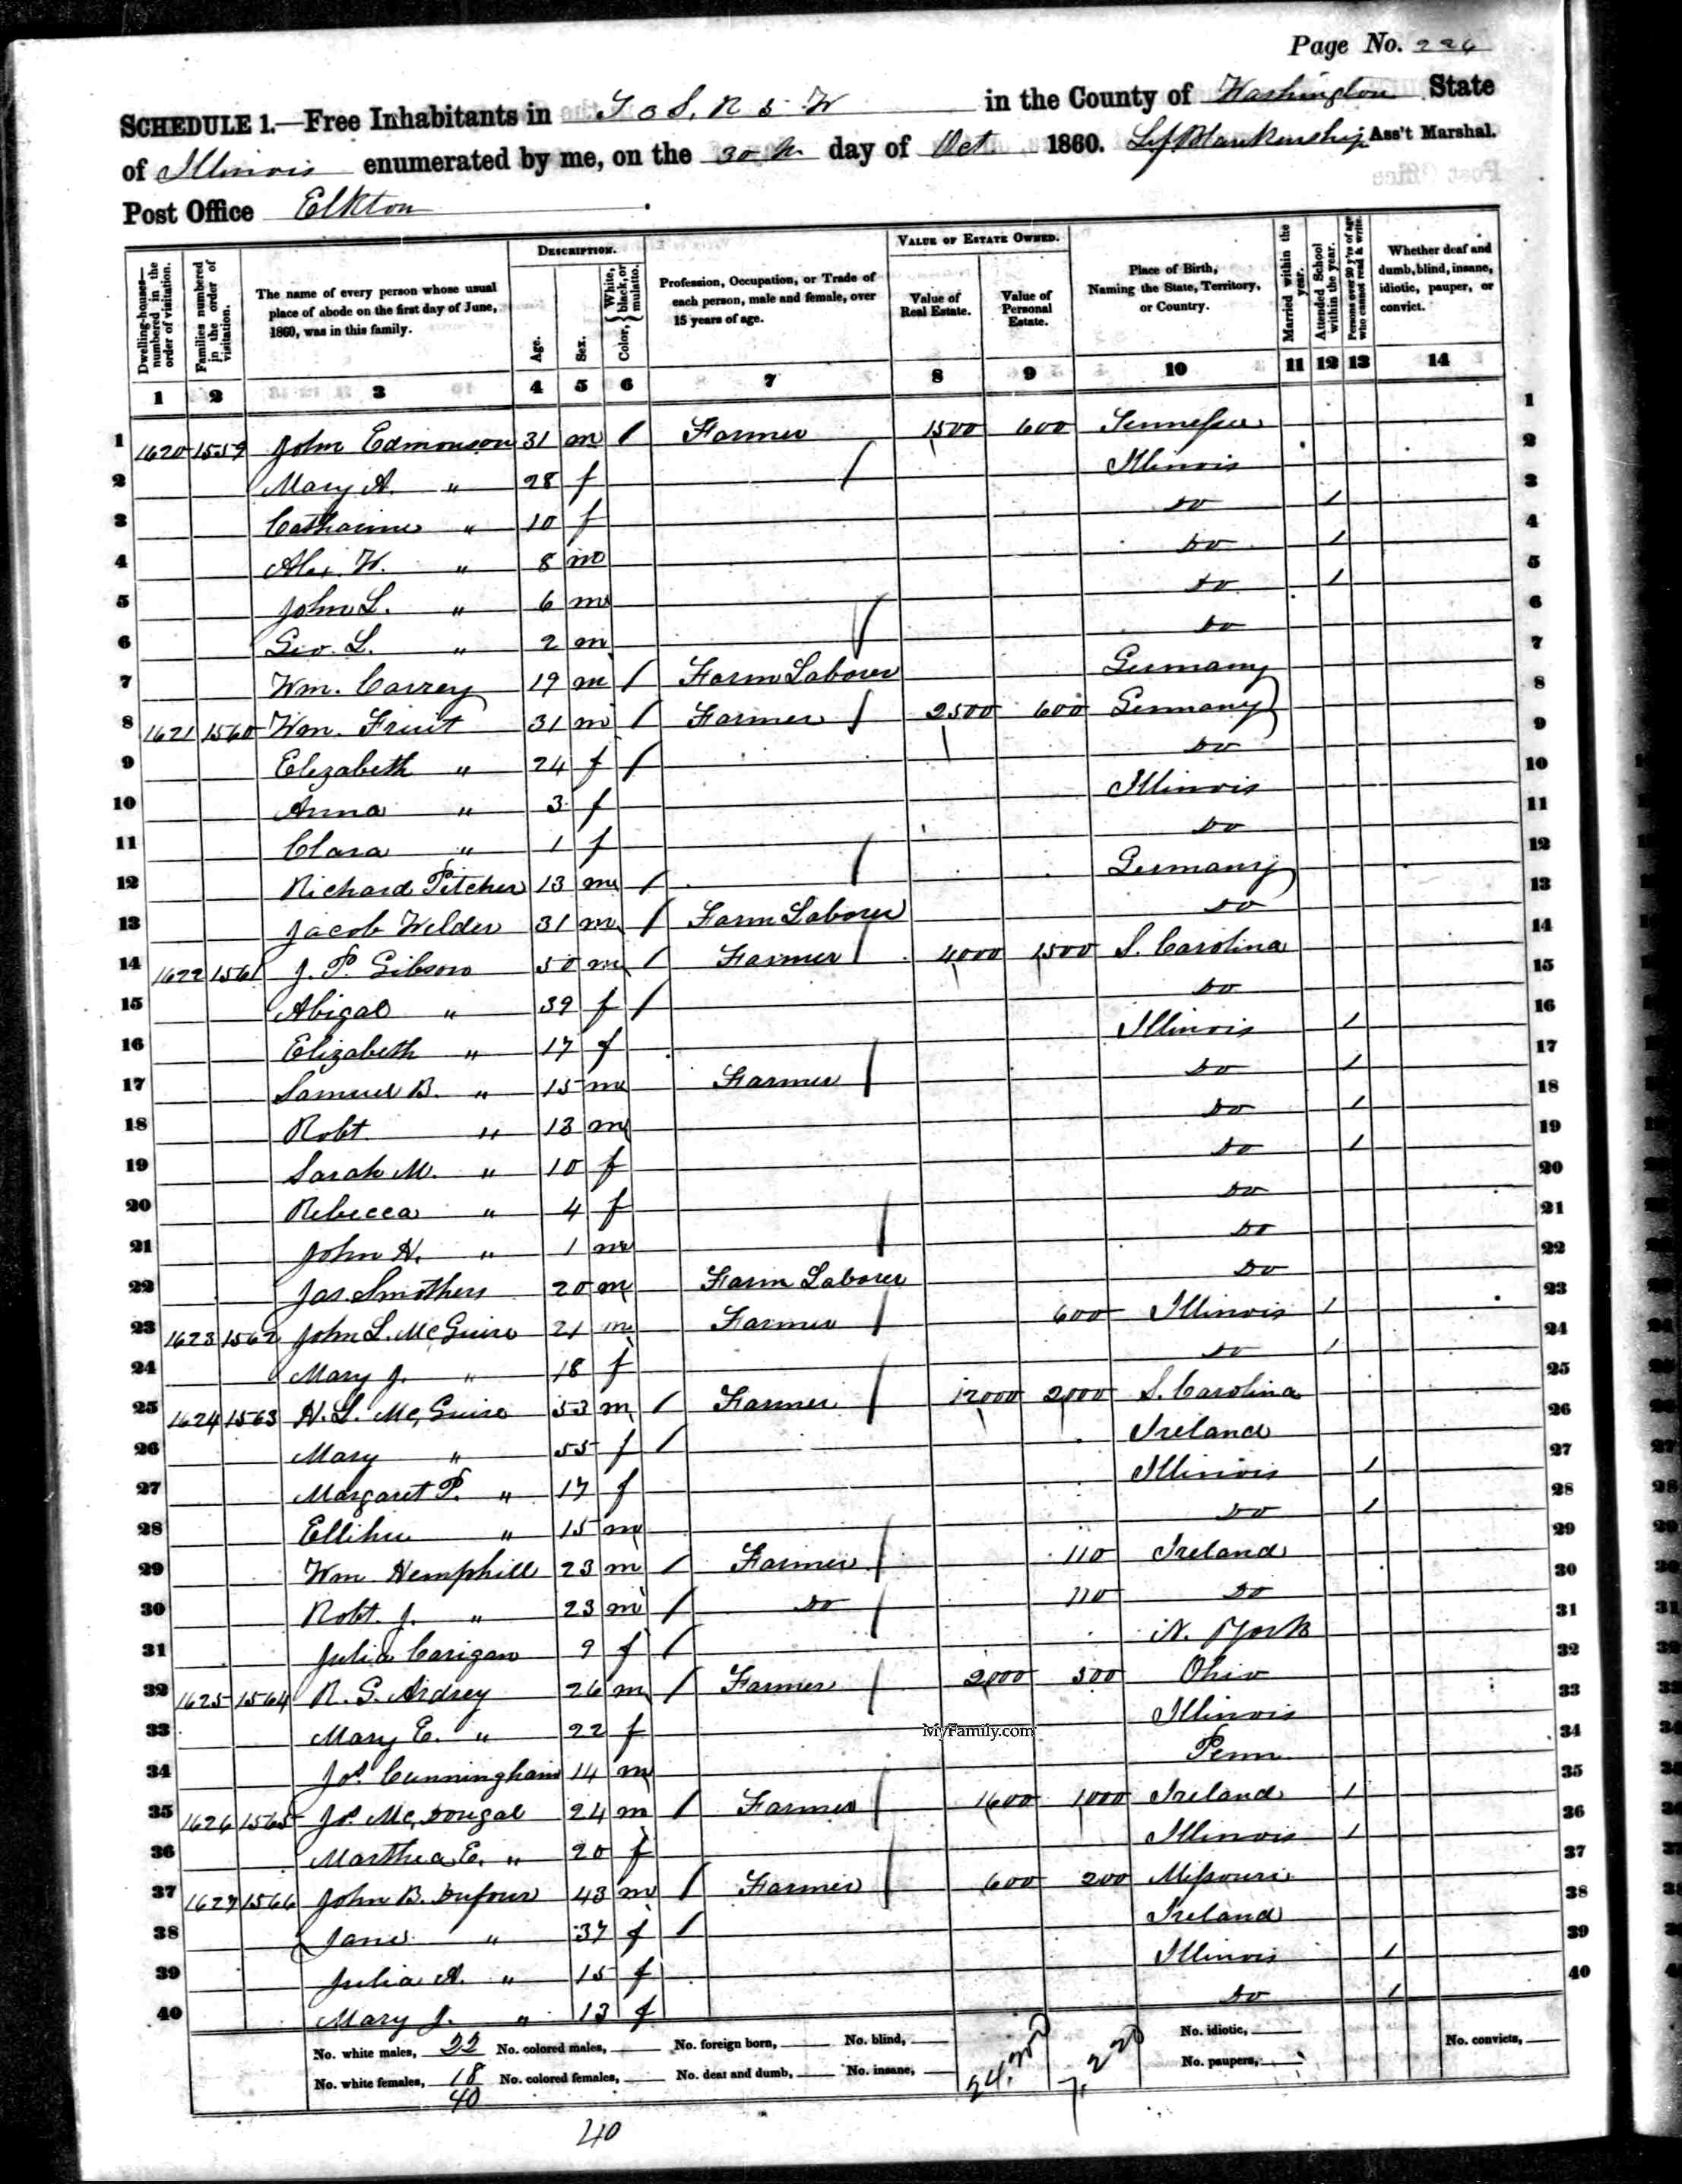 Page No. 226
SCHEDULE 1.—Free Inhabitants in T 3 S, R 5 W in the County of Washington State
of Illinois enumerated by me, on the 30th day of Oct 1860. Ass't Marshal.
Post Office Elkton
Dwelling-houses—numbered in the order of visitation. Families numbered in the order of visitation. The name of every person whose usual place of abode on the first day of June, 1860, was in this family. DESCRIPTION. Age. Sex. Color, { White, black, or mulatto. Profession, Occupation, or Trade of each person, male and female, over 15 years of age. VALUE OF ESTATE OWNED. Value of Real Estate. Value of Personal Estate. Place of Birth, Naming the State, Territory, or Country. Married within the year. Attended School within the year. Persons over 20 y'rs of age who cannot read & write. Whether deaf and dumb, blind, insane, idiotic, pauper, or convict.
1 2 3 4 5 6 7 8 9 10 11 12 13 14
1 1620 1559 John Edmonson 31 m / Farmer 1500 600 Tennessee 1
2 Mary A. " 28 f / Illinois 2
3 Catharine " 10 f Do / 3
4 Alex. W. " 8 m Do / 4
5 John L. " 6 m Do / 5
6 Geo. L. " 2 m / Do 6
7 Wm. Carrey 19 m / Farm Laborer Germany 7
8 1621 1560 Wm. Fruit 31 m / Farmer / 2500 600 Germany 8
9 Elizabeth " 24 f / Do 9
10 Anna " 3 f Illinois 10
11 Clara " 1 f Do 11
12 Richard Pitcher 13 m / / Germany 12
13 Jacob Welder 31 m / Farm Laborer Do 13
14 1622 1561 J. P. Gibson 50 m / Farmer / 4000 1500 S. Carolina 14
15 Abigal " 39 f / Do 15
16 Elizabeth " 17 f Illinois / 16
17 Samuel B. " 15 m Farmer / Do / 17
18 Robt " 13 m Do / 18
19 Sarah M. " 10 f Do / 19
20 Rebecca " 4 f Do 20
21 John H. " 1 m / Do 21
22 Jas. Smothers 20 m Farm Laborer Do 22
23 1623 1562 John L. McGuire 21 m Farmer / 600 Illinois / 23
24 Mary J. " 18 f Do / 24
25 1624 1563 H. L. McGuire 53 m / Farmer / 12000 2000 S. Carolina 25
26 Mary " 55 f / Ireland 26
27 Margaret P. " 17 f Illinois / 27
28 Ellihu " 15 m Do / 28
29 Wm Hemphill 23 m / Farmer / 110 Ireland 29
30 Robt. J. " 23 m / Do / 110 Do 30
31 Julia Carigan 9 f / N. York 31
32 1625 1564 R. G. Ardrey 26 m / Farmer / 2000 300 Ohio 32
33 Mary E. " 22 f Illinois 33
MyFamily.com
34 Jos Cunningham 14 m Penn 34
35 1626 1565 Js. McDougal 24 m / Farmer / 1600 1000 Ireland / 35
36 Martha E. " 20 f Illinois / 36
37 1627 1566 John B. Dufour 43 m / Farmer / 600 200 Missouri 37
38 Jane " 37 f / Ireland 38
39 Julia A. " 15 f Illinois / 39
40 Mary J. " 13 f Do / 40
No. white males, 22 No. colored males, No. foreign born, No. blind, No. idiotic, No. convicts,
No. white females, 18 No. colored females, No. deaf and dumb, No. insane, No. paupers,
40
40